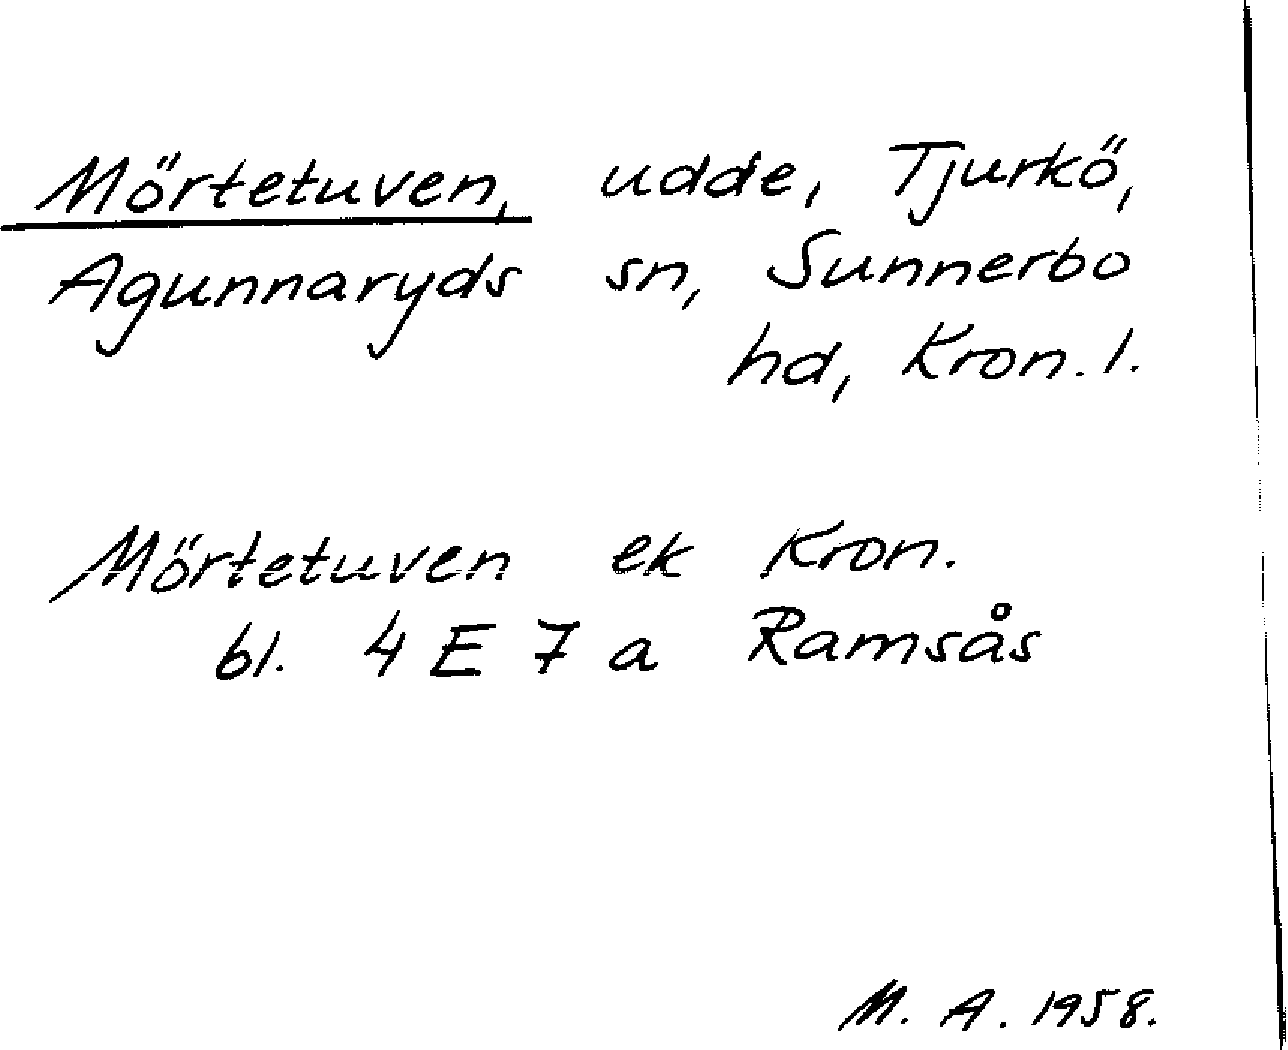 Mörtetuven, udde, Tjurkö,
Agunnaryds sn, Sunnerbo
hd, Kron. l.
Mörtetuven ek Kron.
bl. 4 E 7 a Ramsås
M. A. 1958.